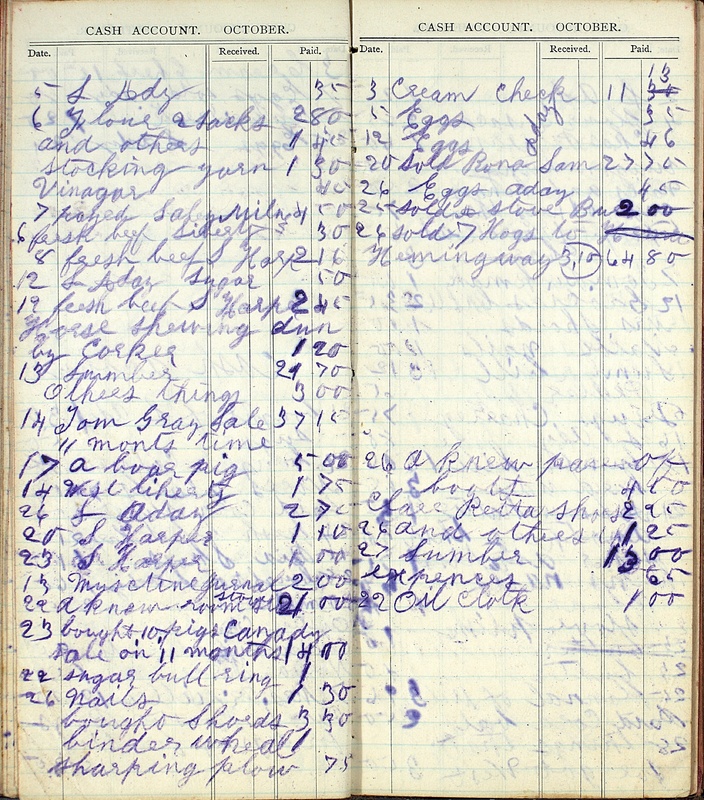 CASH ACCOUNT. OCTOBER.
Date. Received. Paid.
5 S Ady 35
6 Flour 2 sacks 2 80
and others 1 45
stocking yarn 1 30
Vinagar 45
7 Saley Miln 4 50
6 fresh beef Liberty 30
8 fresh beef S Harp 2 16
12 S Aday Sugar 50
19 fresh beef S Harp 2 45
Horse shewing dun
by Corker 1 20
13 Lumber 21 70
Others things 3 00
14 Tom Gray Sale 37 15
11 monts time
17 a boar pig 5 00
14 West liberty 1 75
26 S Aday 2 75
20 S Harper 1 10
23 S Harper 1 00
13 2 00
22 a knew room stove 21 00
23 bought 10 pigs Canady
Sale on 11 months 14 00
22 sugar bull ring 1
26 Nails 1 30
bought Shoeds 3 30
binder wheal 1
sharping plow 75
CASH ACCOUNT. OCTOBER.
Date. Received. Paid.
3 Cream Check 11 13
5 Eggs 35
12 Eggs aday 46
20 Sold Rona Sam 27 75
26 Eggs aday 45
25 Sold a stove 2 00
26 sold 7 Hogs to
Hemingway 3,10 64 80
26 a knew pare of
bought 4 50
Clare Retta Shoes 2 25
26 and others 1 25
27 Lumber 13 00
expences 65
22 Oil Cloth 1 00